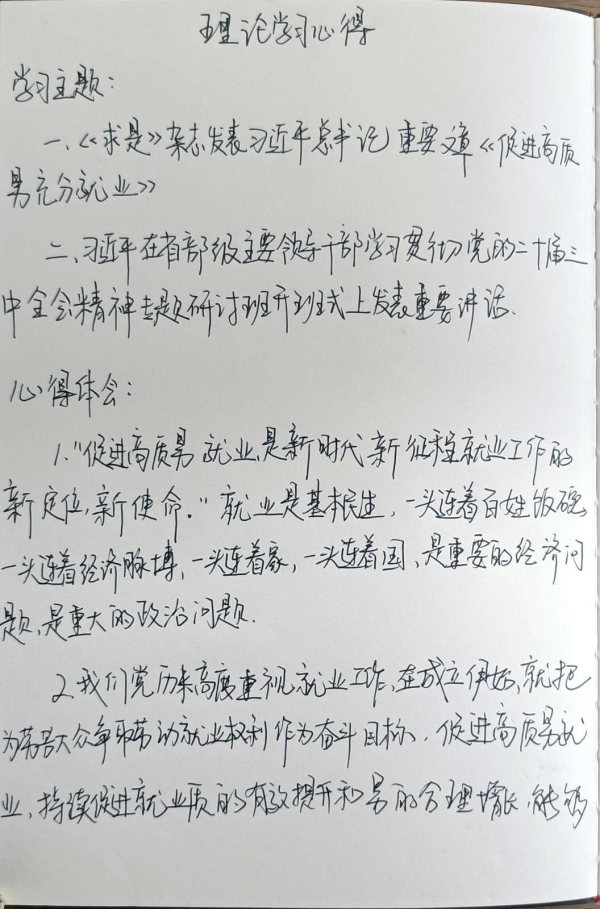 理论学习心得
学习主题：
一、《求是》杂志发表习近平总书记重要文章《促进高质
量充分就业》
二、习近平在省部级主要领导干部学习贯彻党的二十届三
中全会精神专题研讨班开班式上发表重要讲话.
心得体会：
1."促进高质量就业,是新时代新征程就业工作的
新定位,新使命."就业是基本民生,一头连着百姓饭碗
一头连着经济脉搏,一头连着家,一头连着国,是重要的经济问
题,是重大的政治问题.
2.我们党历来高度重视就业工作,在成立伊始,就把
为劳苦大众争取劳动就业权利作为奋斗目标、促进高质量就
业,持续促进就业质的有效提升和量的合理增长,能够